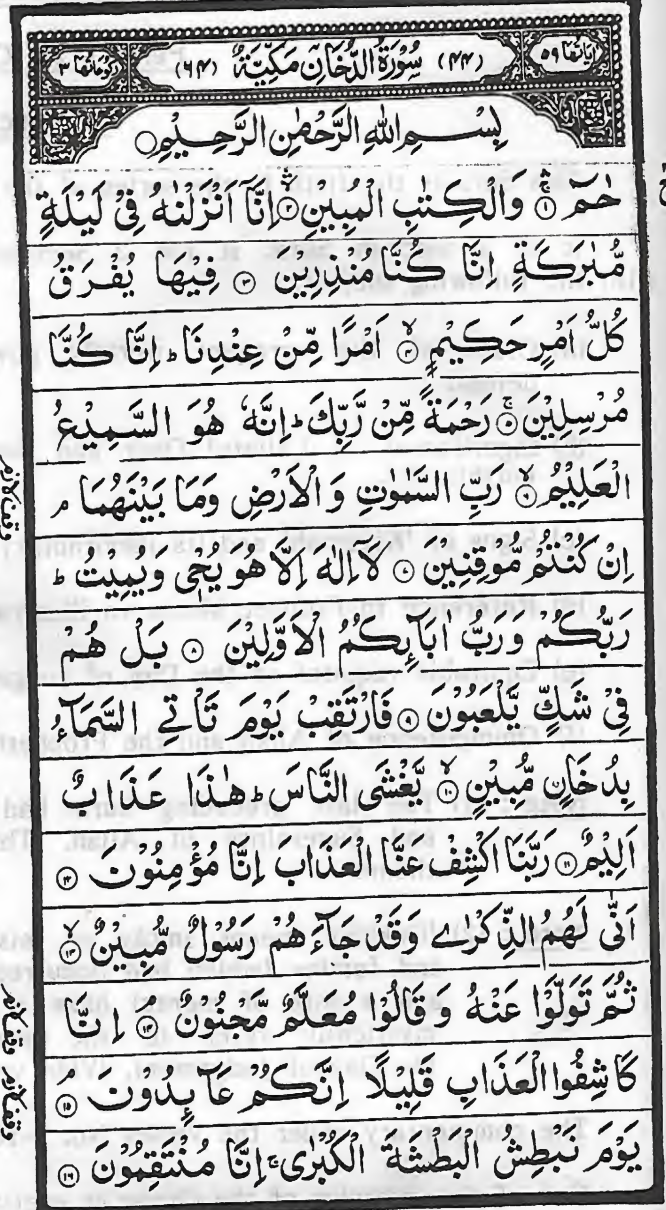 اٰیَاتُهَا ۵۹ (۴۴) سُوْرَةُ الدُّخَانِ مَكِّیَّةٌ (۶۴) رُكُوْعَاتُهَا ۳
بِسْمِ اللهِ الرَّحْمٰنِ الرَّحِیْمِ
حٰمٓ ۱ وَالْكِتٰبِ الْمُبِیْنِ ۲ اِنَّاۤ اَنْزَلْنٰهُ فِیْ لَیْلَةٍ
مُّبٰرَكَةٍ اِنَّا كُنَّا مُنْذِرِیْنَ ۳ فِیْهَا یُفْرَقُ
كُلُّ اَمْرٍ حَكِیْمٍ ۴ اَمْرًا مِّنْ عِنْدِنَا ط اِنَّا كُنَّا
مُرْسِلِیْنَ ۵ رَحْمَةً مِّنْ رَّبِّكَ ط اِنَّهٗ هُوَ السَّمِیْعُ
الْعَلِیْمُ ۶ رَبِّ السَّمٰوٰتِ وَ الْاَرْضِ وَمَا بَیْنَهُمَا م
اِنْ كُنْتُمْ مُّوْقِنِیْنَ ۷ لَاۤ اِلٰهَ اِلَّا هُوَ یُحْیٖ وَیُمِیْتُ ط
رَبُّكُمْ وَرَبُّ اٰبَآىِٕكُمُ الْاَوَّلِیْنَ ۸ بَلْ هُمْ
فِیْ شَكٍّ یَّلْعَبُوْنَ ۹ فَارْتَقِبْ یَوْمَ تَاْتِی السَّمَآءُ
بِدُخَانٍ مُّبِیْنٍ ۱۰ یَّغْشَی النَّاسَ ط هٰذَا عَذَابٌ
اَلِیْمٌ ۱۱ رَبَّنَا اكْشِفْ عَنَّا الْعَذَابَ اِنَّا مُؤْمِنُوْنَ ۱۲
اَنّٰی لَهُمُ الذِّكْرٰی وَقَدْ جَآءَهُمْ رَسُوْلٌ مُّبِیْنٌ ۱۳
ثُمَّ تَوَلَّوْا عَنْهُ وَقَالُوْا مُعَلَّمٌ مَّجْنُوْنٌ ۱۴ اِنَّا
كَاشِفُوا الْعَذَابِ قَلِیْلًا اِنَّكُمْ عَآىِٕدُوْنَ ۱۵
یَوْمَ نَبْطِشُ الْبَطْشَةَ الْكُبْرٰی ج اِنَّا مُنْتَقِمُوْنَ ۱۶
وقف لازم
وقف لازم وقف لازم